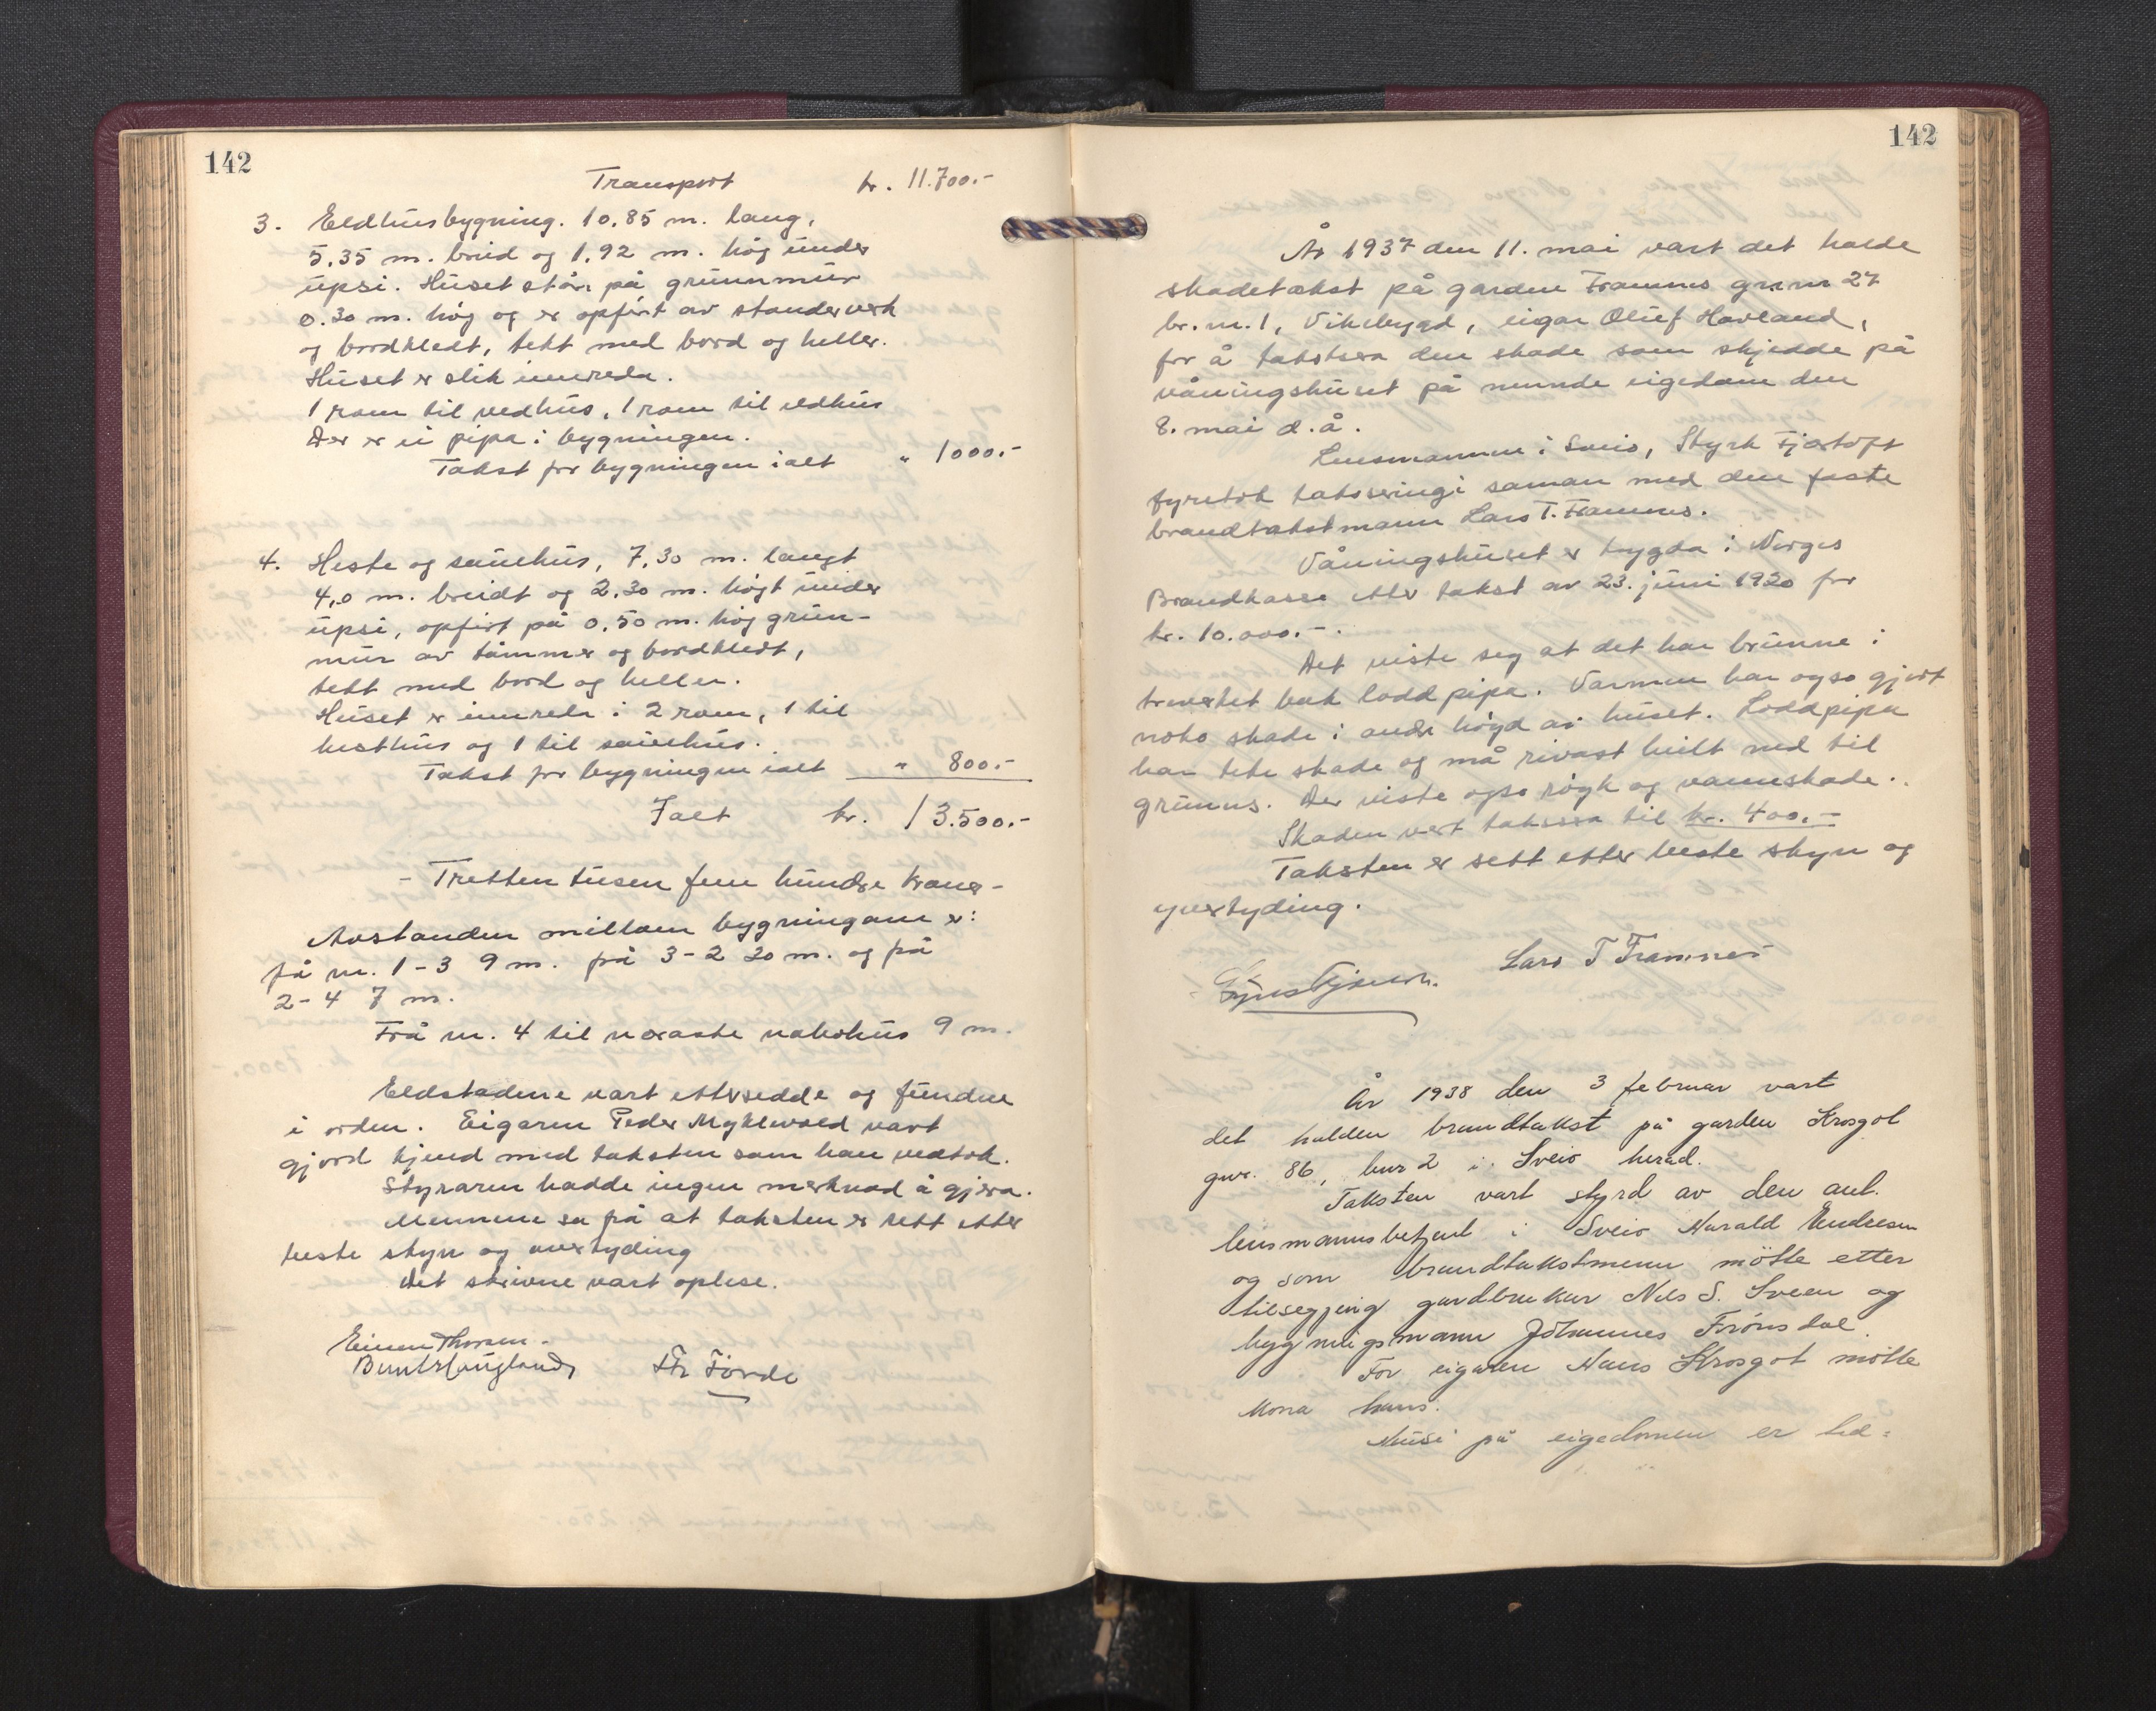 142
Transport kr. 11.700.-
3. Eldhusbygning. 10.85 m. lang,
5.35 m. breid og 1.92 m. høg under
upsi. Huset står på grunnmur
0.30 m. høg og er opført av standerverk
og bordkledt, tekt med bord og heller.
Huset er slik innreda.
1 rom til vedhus, 1 rom til eldhus
Der er ei pipa i bygningen.
Takst for bygningen ialt " 1000.-
4. Heste og sauehus, 7.30 m. langt
4,0 m. breidt og 2.30 m. høgt under
upsi, opført på 0.50 m. høg grun-
mur av tømmer og bordkledt,
tekt med bord og heller.
Huset er innreda i 2 rom, 1 til
hesthus og 1 til sauehus.
Takst for bygningen ialt " 800.-
Ialt kr. 13.500.-
- Tretten tusen fem hundre kroner -
Avstanden millom bygningane er:
på nr. 1-3 9 m. på 3-2 20 m. og på
2-4 7 m.
Frå nr. 4 til næraste nabohus 9 m.
Eldstadene vart ettersedde og fundne
i orden. Eigaren Peder Myklevold vart
gjord kjend med taksten som han vedtok.
Styraren hadde ingen merknad å gjera.
Mennene sa på at taksten er sett etter
beste skyn og overtyding
Det skrivne vart oplese.
Einar Thorsen.
Bernt Haugland Fr Førde
142
År 1937 den 11. mai vart det halde
skadetakst på garden Framnes gr.nr 27
br.nr. 1, Vikebygd, eigar Oluf Hovland,
for å taksera den skade som skjedde på
våningshuset på nemnde eigedom den
8. mai d.å.
Lensmannen i Sveio, Styrk Fjærtoft
fyretok takseringi saman med den faste
brandtakstmann Lars T. Framnes.
Våningshuset er trygda i Norges
Brandkasse etter takst av 23. juni 1920 for
kr. 10.000.-.
Det viste seg at det har brunne i
treverket bak loddpipa. Varmen har ogso gjort
noko skade i andre høgd av huset. Loddpipa
har teke skade og må rivast heilt ned til
grunns. Der viste ogso røyk og vannskade.
Skaden vert taksera til kr. 400.-
Taksten er sett etter beste skyn og
yvertyding.
Lars T Framnes
År 1938 den 3 februar vart
det halden brandtakst på garden Krosgot
gnr. 86, bnr 2 i Sveio herad.
Taksten vart styrd av den aut.
lensmannsbetjent i Sveio Harald Endresen
og som brandtakstmenn møtte etter
tilsegjing gardbrukar Nils S. Sveen og
bygningsmann Johannes Frønsdal.
For eigaren Hans Krosgot møtte
kona hans.
Husi på eigedomen er tid-